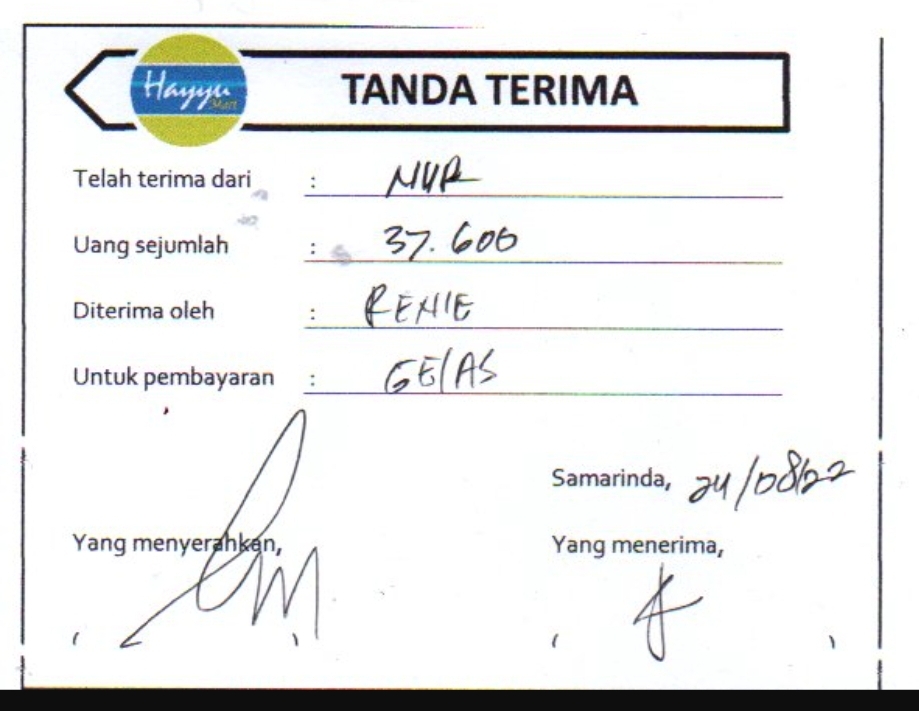 Hayyu
Mart
TANDA TERIMA
Telah terima dari : NUR
Uang sejumlah : 37.600
Diterima oleh : RENIE
Untuk pembayaran : GELAS
Samarinda, 24/08/22
Yang menyerahkan,
Yang menerima,
( ) ( )